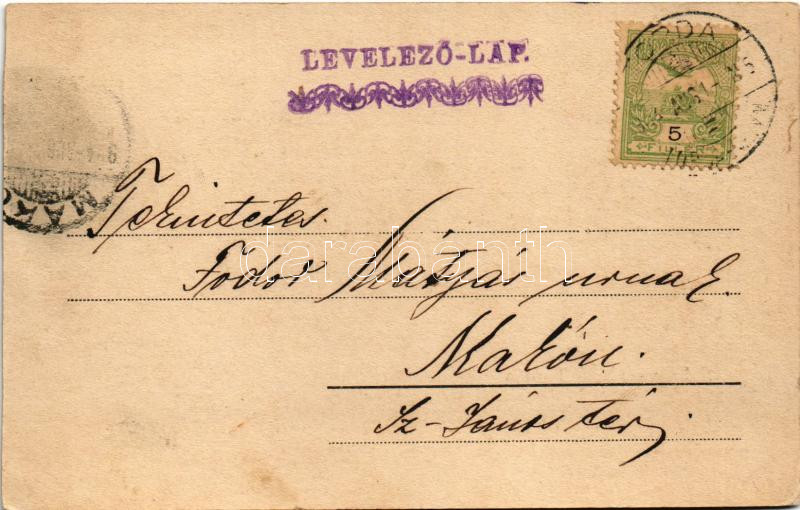 LEVELEZŐ-LAP.
5
FILLÉR
MAKÓ
Tekintetes
Fodor Mátyás urnak
Makón.
Sz-János tér
darabanth